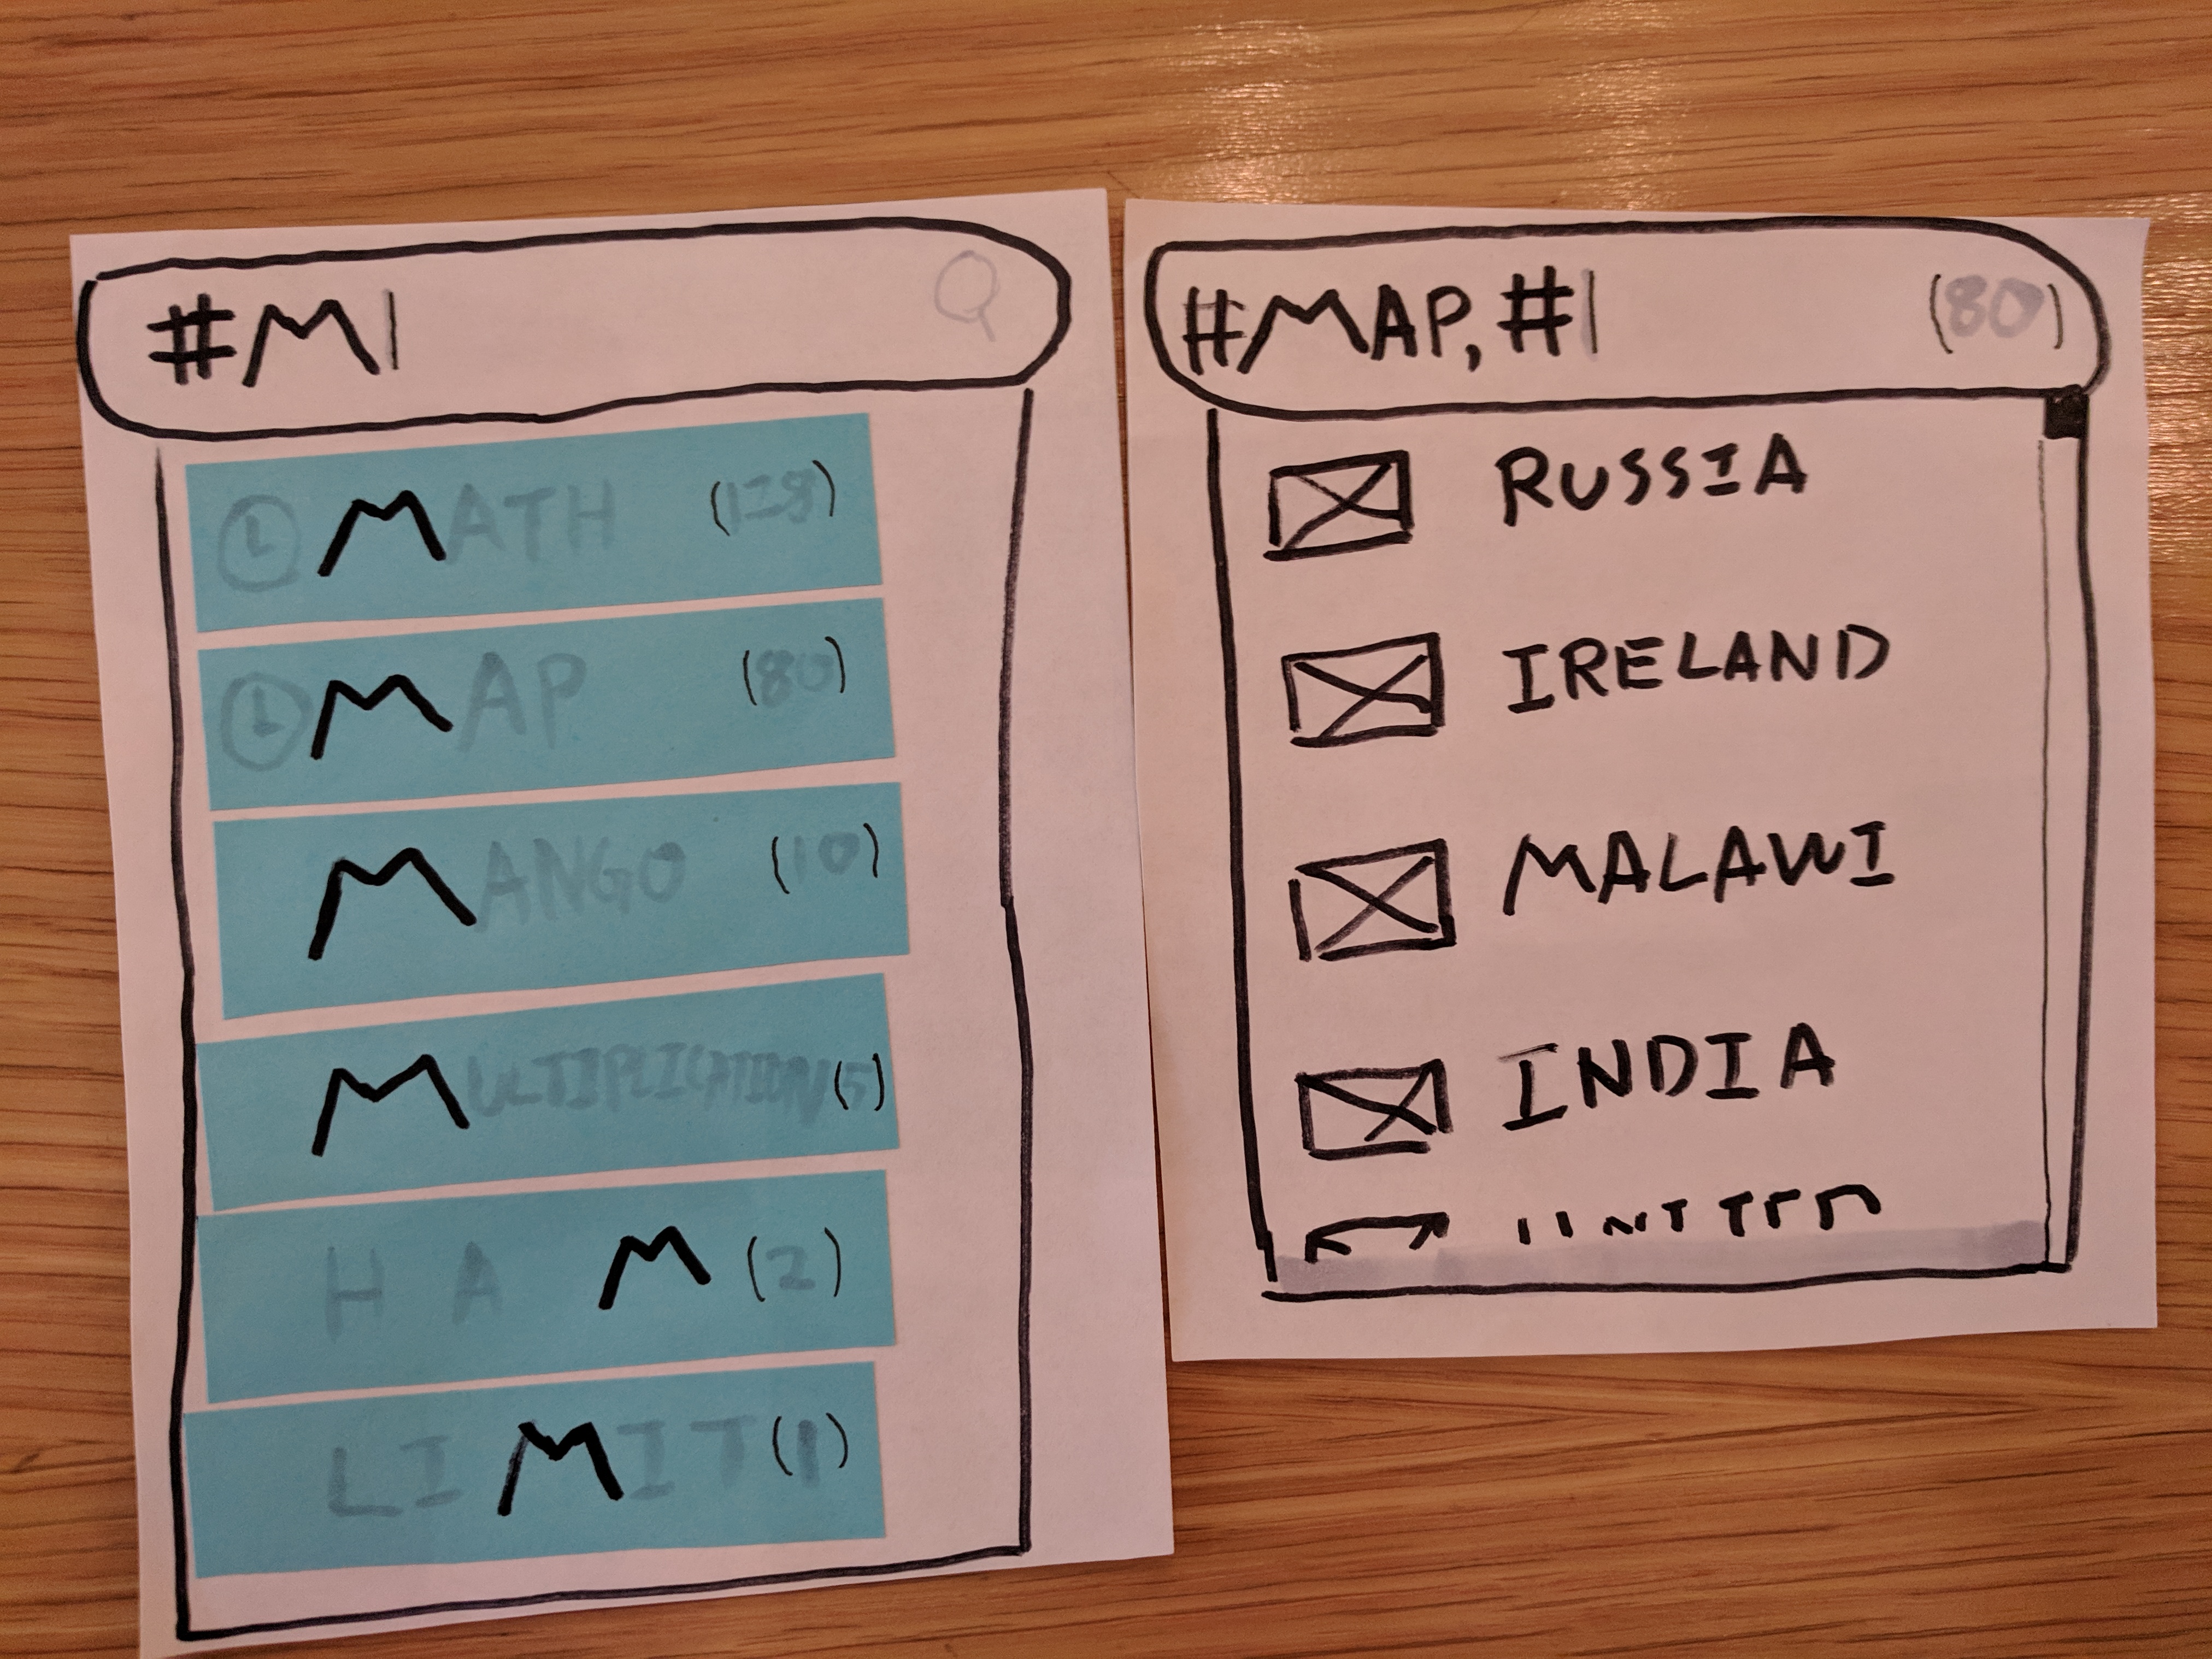 #M|
MATH (128)
MAP (80)
MANGO (10)
MULTIPLICATION (5)
HAM (2)
LIMIT (1)
#MAP, #| (80)
RUSSIA
IRELAND
MALAWI
INDIA
UNITED